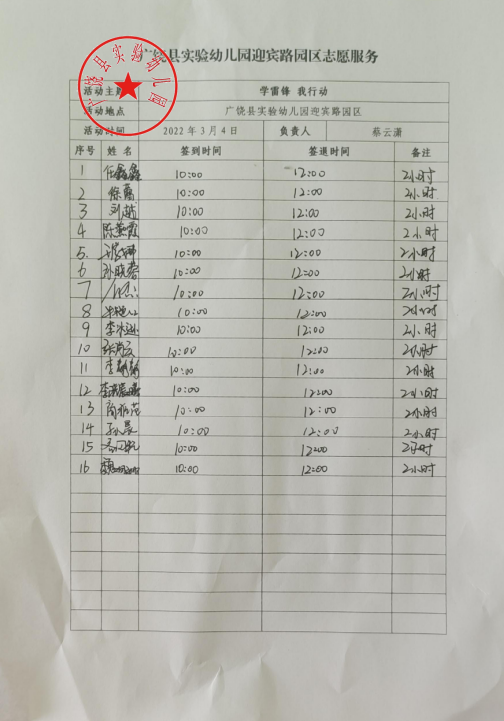 广饶县实验幼儿园迎宾路园区志愿服务
广饶县实验幼儿园
活动主题 学雷锋 我行动
活动地点 广饶县实验幼儿园迎宾路园区
活动时间 2022年3月4日 负责人 蔡云潇
序号 姓名 签到时间 签退时间 备注
1 任鑫鑫 10:00 12:00 2小时
2 10:00 12:00 2小时
3 10:00 12:00 2小时
4 陈燕霞 10:00 12:00 2小时
5. 10:00 12:00 2小时
6 孙晓蓉 10:00 12:00 2小时
7 10:00 12:00 2小时
8 10:00 12:00 2小时
9 10:00 12:00 2小时
10 10:00 12:00 2小时
11 10:00 12:00 2小时
12 10:00 12:00 2小时
13 10:00 12:00 2小时
14 孙晨 10:00 12:00 2小时
15 10:00 12:00 2小时
16 10:00 12:00 2小时